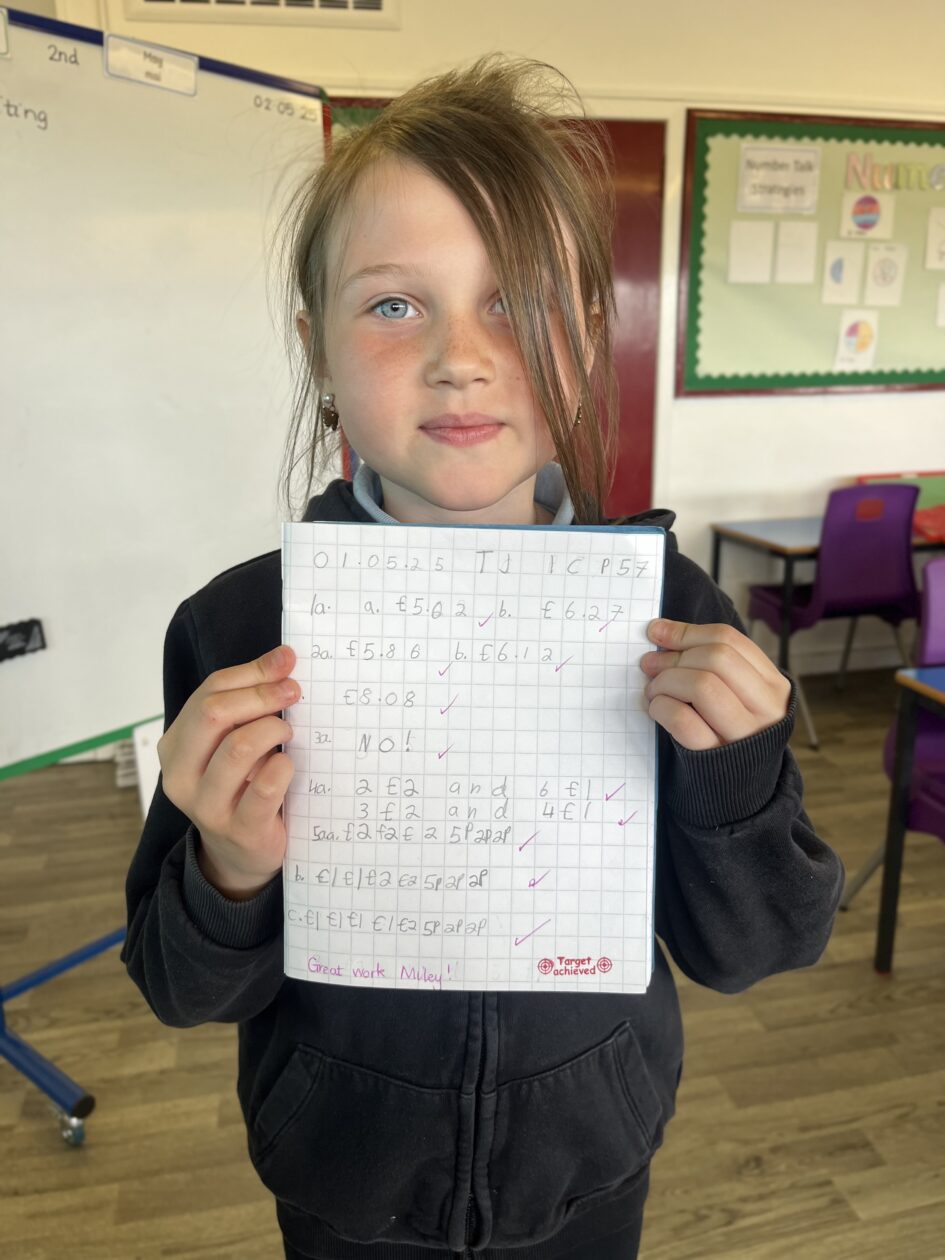 2nd
May
mai
02.05.25
ting
Number Talk
Strategies
Nume
01.05.25 TJ 1C P57
1a. a. £5.62 b. £6.27
2a. £5.86 b. £6.12
£8.08
3a. NO!
4a. 2 £2 and 6 £1
3 £2 and 4 £1
5aa. £2 £2 £2 5p 2p 2p
b. £1 £1 £2 £2 5p 2p 2p
c. £1 £1 £1 £1 £2 5p 2p 2p
Great work Miley!
Target
achieved